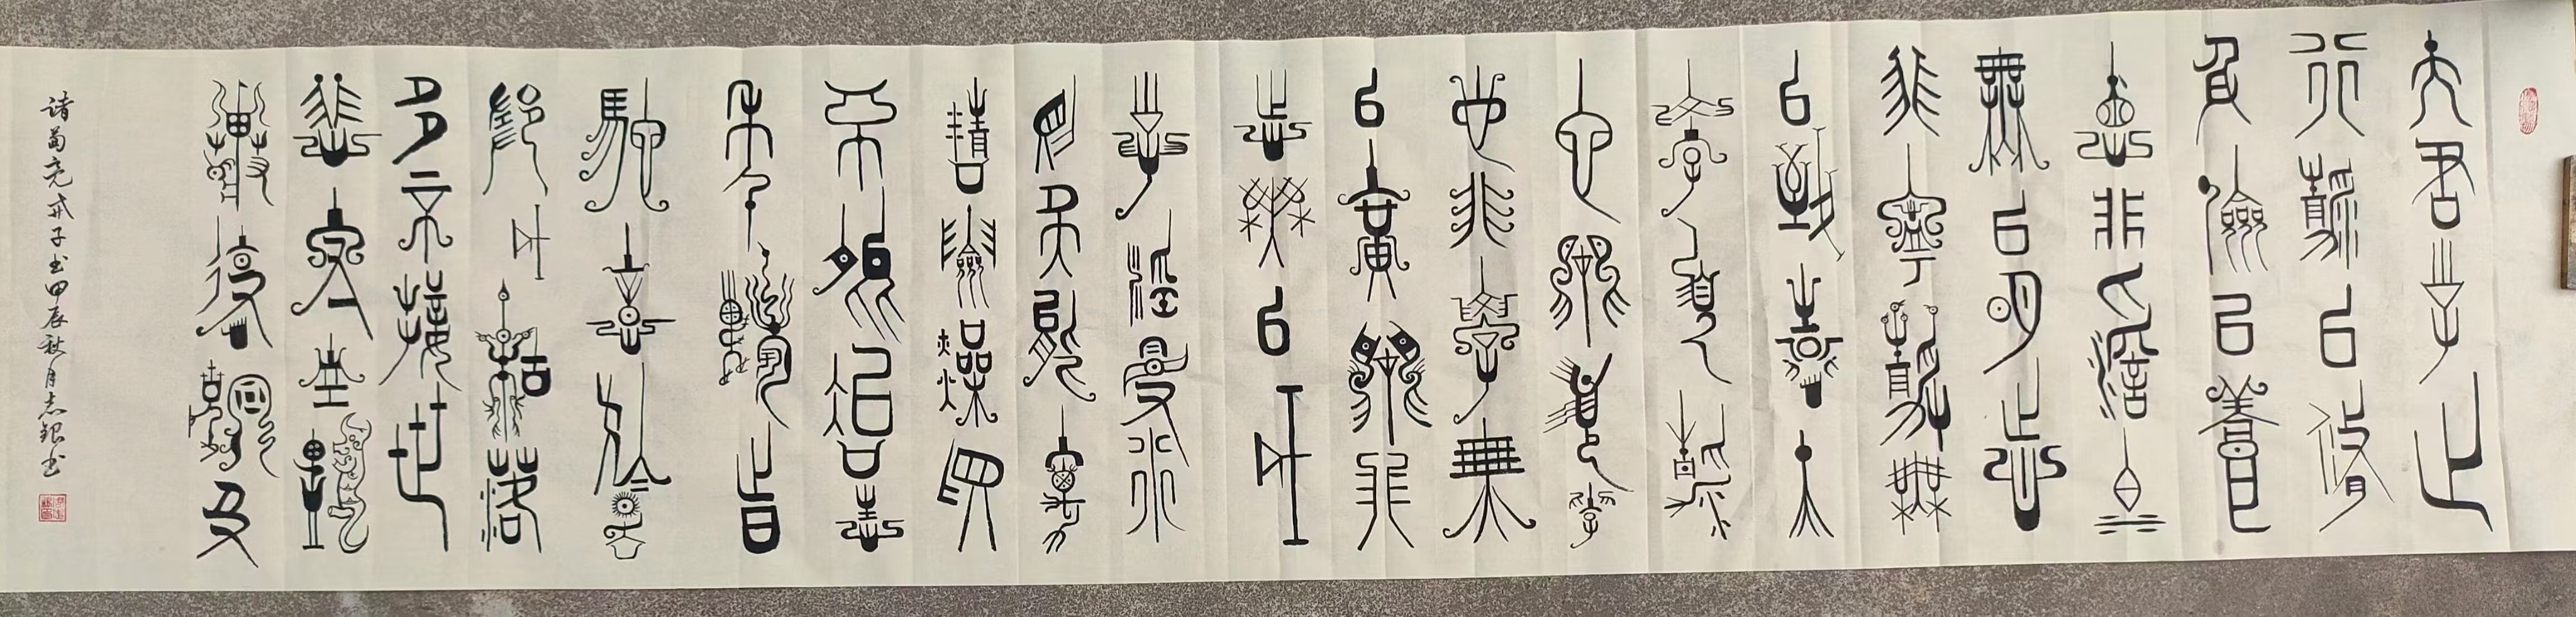 夫君子之
行靜以修
身儉以養
悳非澹泊
無以明志
非寧靜無
以致遠夫
學須靜
也才須學
也非學無
以廣才非
志無以成
學淫慢
則不能
精險躁則
不能治性
年與時
馳意與日
去成枯落
多不接世
悲守窮廬
將復何及
诸葛亮戒子书甲辰秋月志银书